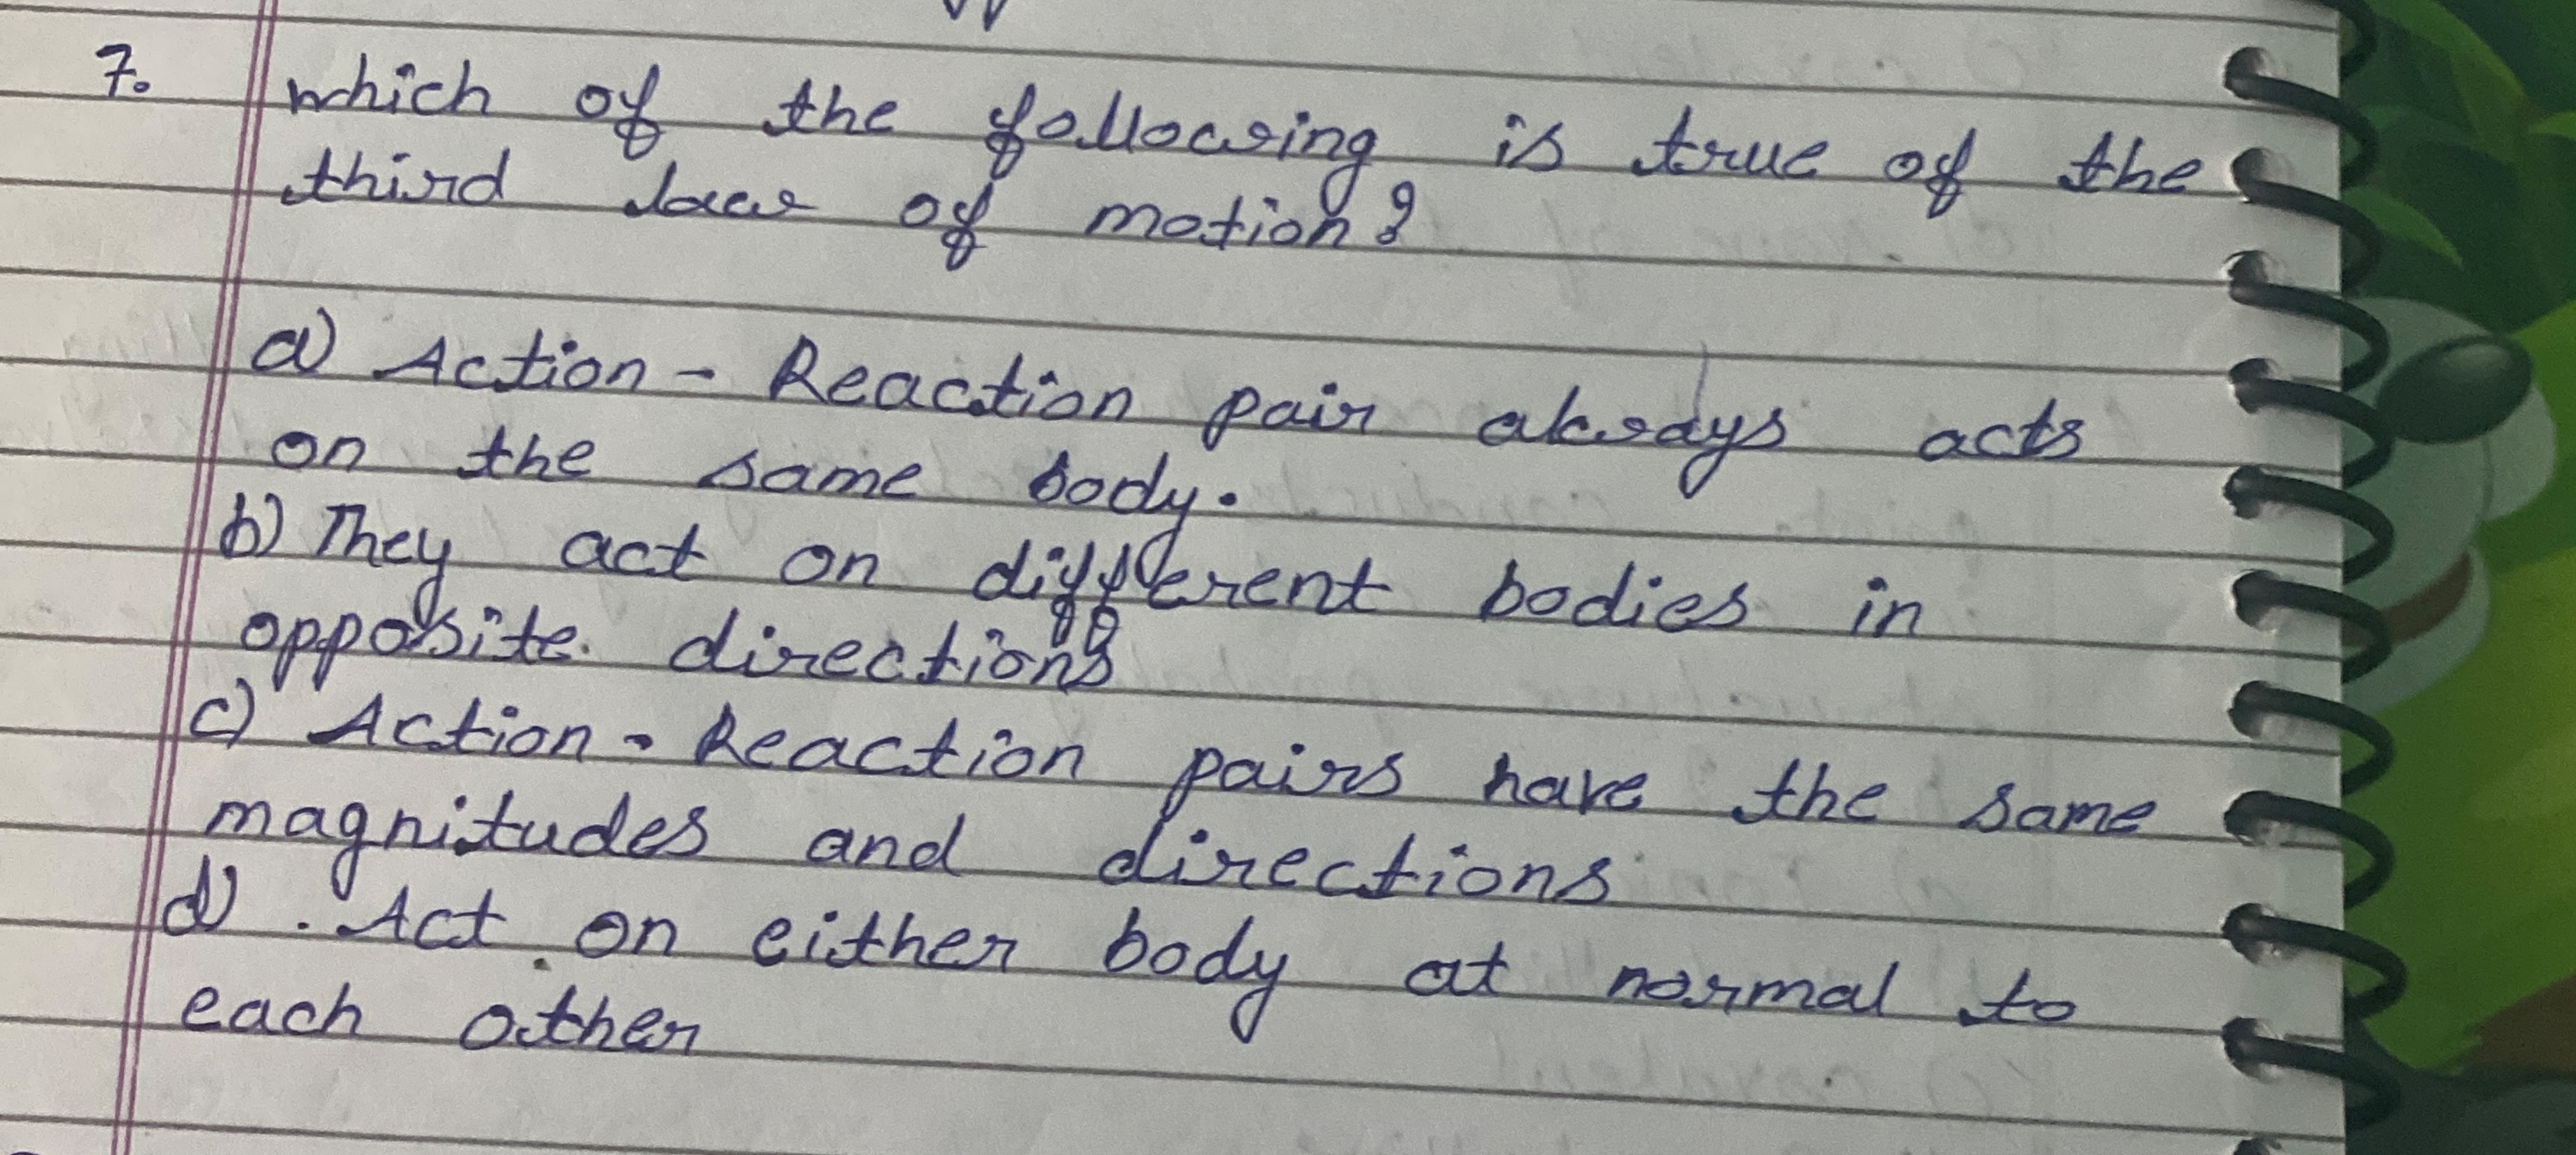 7. which of the following is true of the
third law of motion?
a) Action - Reaction pair always acts
on the same body.
b) They act on different bodies in
opposite directions
c) Action - Reaction pairs have the same
magnitudes and directions
d) Act on either body at normal to
each other